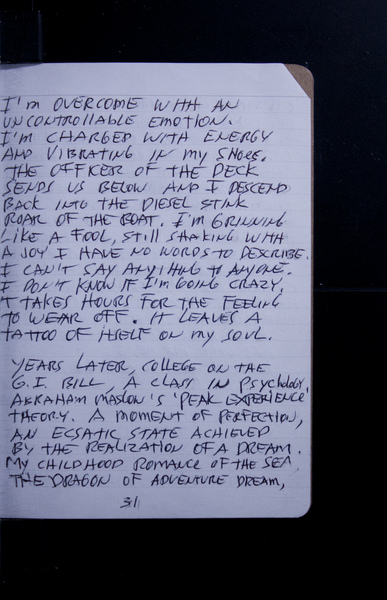 I'm OVERCOME WITH AN
UNCONTROLLABLE EMOTION.
I'M CHARGED WITH ENERGY
AND VIBRATING IN MY SHOES.
THE OFFICER OF THE DECK
SENDS US BELOW AND I DESCEND
BACK INTO THE DIESEL STINK
ROAR OF THE BOAT. I'M GRINNING
LIKE A FOOL, STILL SHAKING WITH
A JOY I HAVE NO WORDS TO DESCRIBE.
I CAN'T SAY ANYTHING TO ANYONE.
I DON'T KNOW IF I'M GOING CRAZY,
IT TAKES HOURS FOR THE FEELING
TO WEAR OFF. IT LEAVES A
TATTOO OF ITSELF ON MY SOUL.
YEARS LATER, COLLEGE ON THE
G.I. BILL, A CLASS IN PSYCHOLOGY,
ABRAHAM MASLOW'S 'PEAK EXPERIENCE'
THEORY. A MOMENT OF PERFECTION,
AN ECSATIC STATE ACHIEVED
BY THE REALIZATION OF A DREAM.
MY CHILDHOOD ROMANCE OF THE SEA,
THE DRAGON OF ADVENTURE DREAM,
31